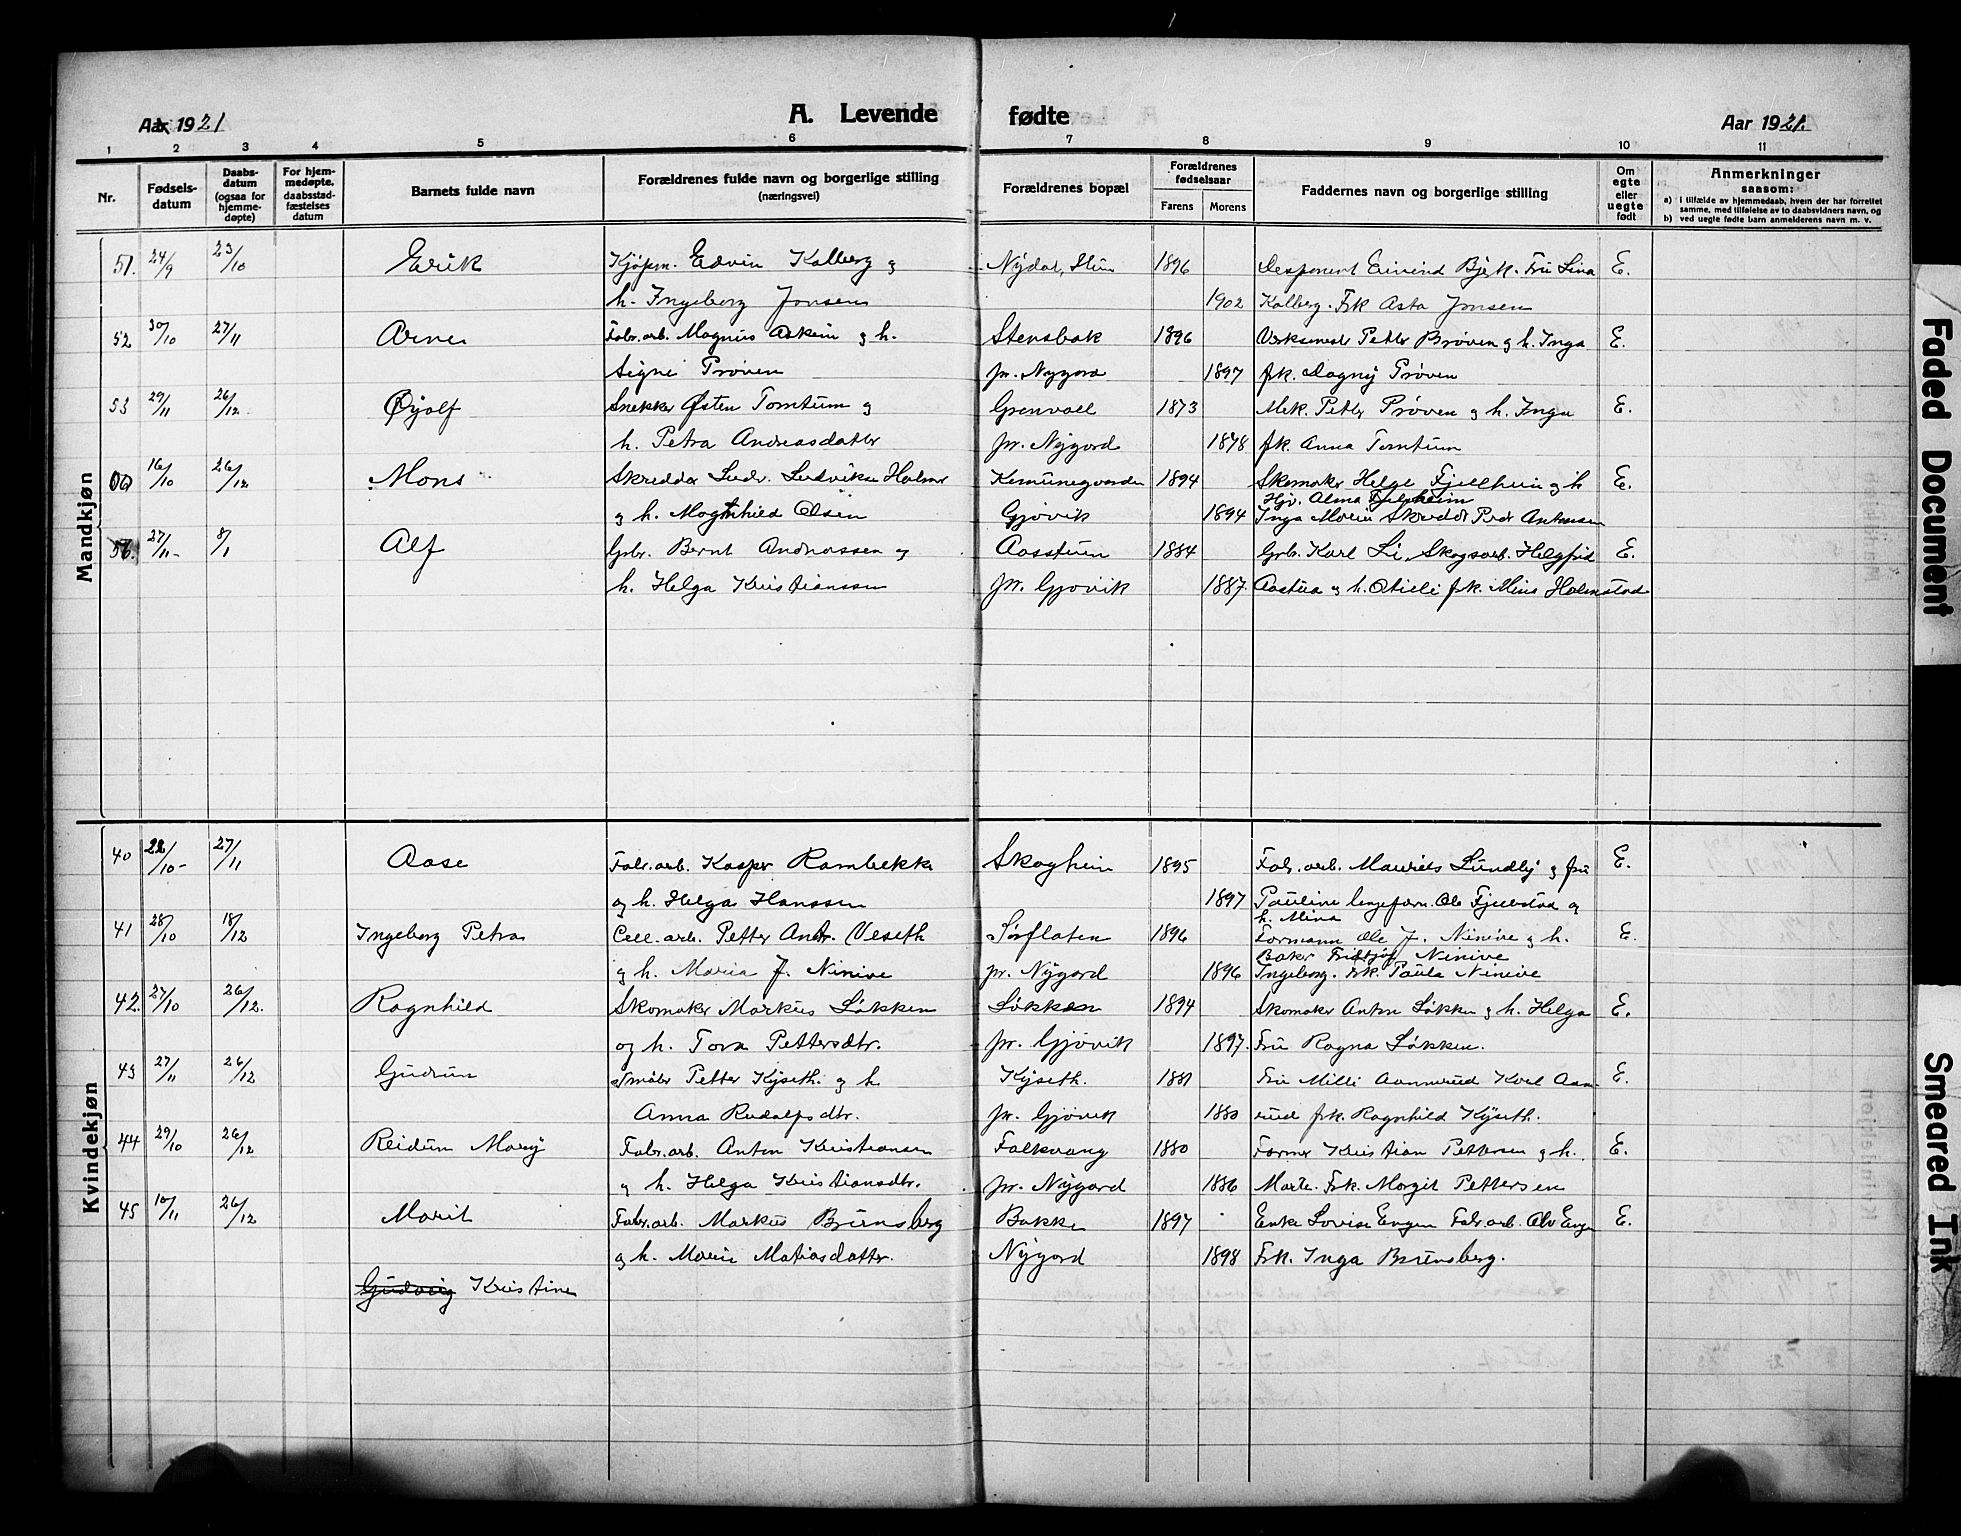 Aar 1921
A. Levende
fødte
Aar 1921.
1 2 3 4 5 6 7 8 9 10 11
Nr.
Fødsels-
datum
Daabs-
datum
(ogsaa for
hjemme-
døpte)
For hjem-
medøpte,
daabsstad-
fæstelses
datum
Barnets fulde navn
Forældrenes fulde navn og borgerlige stilling
(næringsvei)
Forældrenes bopæl
Forældrenes
fødselsaar
Farens Morens
Faddernes navn og borgerlige stilling
Om
egte
eller
uegte
født
Anmerkninger
saasom:
a) i tilfælde av hjemmedaab, hvem der har forrettet
samme, med tilføielse av to daabsvidners navn, og
b) ved uegte fødte barn anmelderens navn m. v.
Mandkjøn
51. 24/9 23/10 Erik Kjøpm. Edvin Kalberg og Nydal, 1896 Disponent Eivind Bjerk. Fru Lina E.
h. Ingeborg Jonsen 1902 Kalberg. Frk Asta Jonsen
52 30/10 27/11 Arne Fabr.arb. Magnus Askim og h. Stensbak 1896 Verksmester Petter Brøven og h. Inga E.
Signe Prøven pr. Nygard 1897 frk. Dagny Prøven
53 29/11 26/12 Øyolf Snekker Østen Tomtum og Grenvoll 1873 Mek. Petter Prøven og h. Inga E.
h. Petra Andreasdatter pr. Nygord 1878 frk Anna Tomtum
16/10 26/12 Mons Skredder Ludv. Ludviksen Holmer Kemnergaarden 1894 Skomaker Helge Fjellheim og h E.
Hjv. Alma Fjellheim
og h. Magnhild Olsen Gjøvik 1894 Inga Marie Skredder Antonsen
56. 27/11 8/1 Alf Grbr. Bernt Andreassen og Aasstuen 1884 Grb. Karl Li, Skogsarb. Helgfrid E.
h. Helga Kristianssen pr. Gjøvik 1887. Aastua og h. Otieli frk. Mina Holmstad
Kvindekjøn
40 22/10 27/11 Aase Fabr.arb. Kasper Rambekk Skoghein 1895 Fabr.arb. Maurits Lundby og fru E.
og h. Helga Hanssen 1897 Pauline Ole Fjeldstad og
h. Mina
41 28/10 18/12 Ingeborg Petra Cell.arb. Petter Andr. Veseth Sørflaten 1896 Formann Ole J. Ninive og h. E.
Baker Fridtjof Ninive
og h. Maria J. Ninive pr. Nygord 1896 Ingeborg. Frk. Paula Ninive
42. 27/10 26/12. Ragnhild Skomaker Markus Løkken Løkken 1894 Skomaker Anton Løkken og h. Helga E.
og h. Tora Pettersdtr. pr. Gjøvik 1897. Fru Ragna Løkken.
43 27/11 26/12 Gudrun Småbr Petter Kyseth. og h Kyseth. 1881 Fru Milli Aannerud Karl Aan- E.
Anna Rudolfsdtr. pr. Gjøvik 1880 erud frk. Ragnhild Kyseth.
44 29/10 26/12 Reidun Mary Fabr.arb. Anton Kristiansen Falkvang 1880 Former Kristian Pettersen og h. E.
og h. Helga Kristiansdtr. pr. Nygard 1886 Marte. Frk. Margit Pettersen
45 10/11 26/12 Marit Fabr.arb. Markus Brunsberg Bakke 1897 Enke Lovise Engen Fabr.arb. Alv Engen E.
og h. Marie Matiasdatter. Nygord 1898 Frk. Inga Brunsberg.
Gudveig Kristine
Faded Document
Smeared Ink